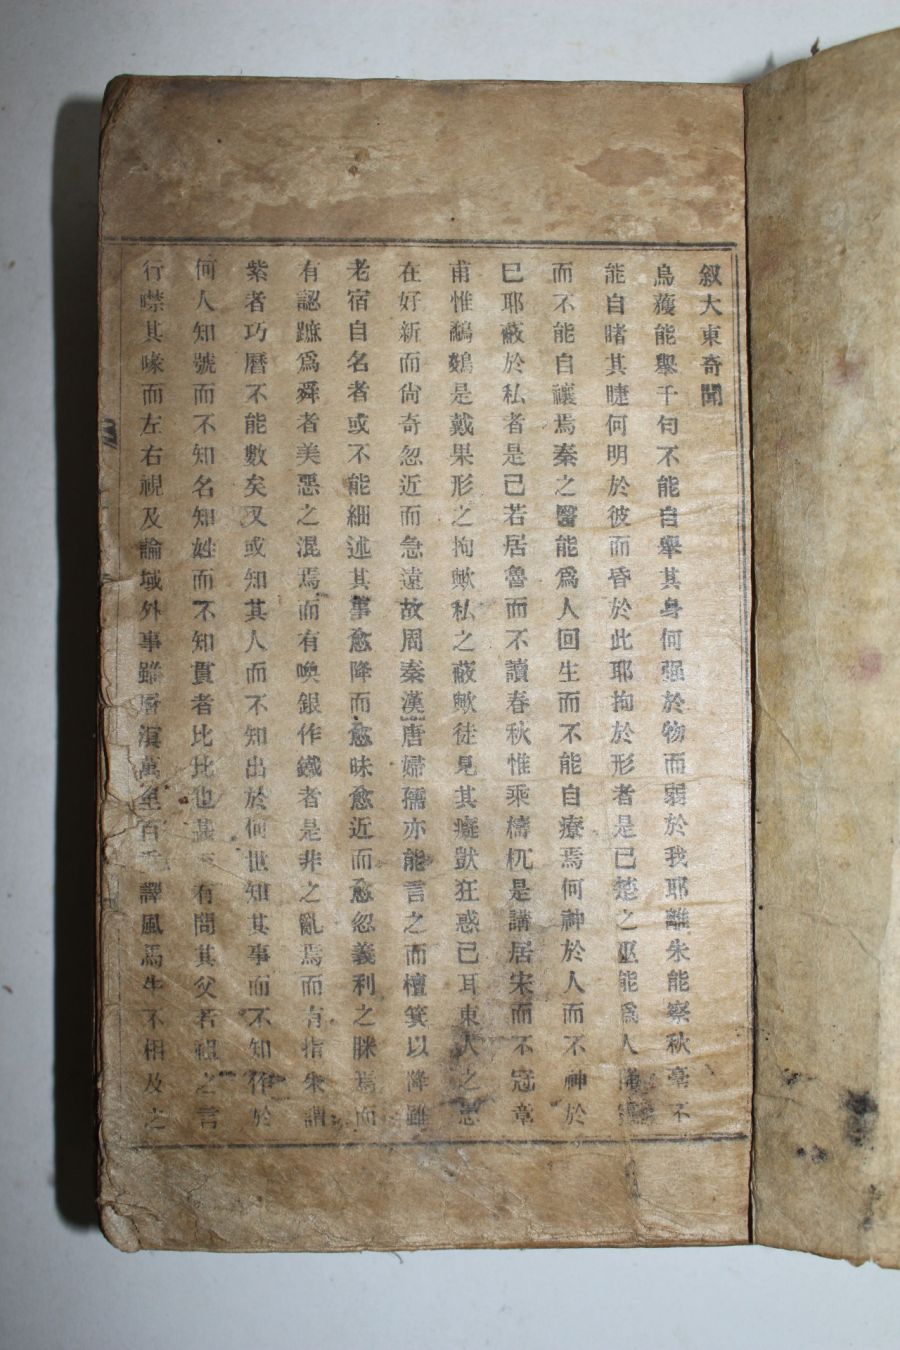 叙大東奇聞
烏蒦能擧千匀不能自擧其身何强於物而弱於我耶離朱能察秋毫不
能自睹其睫何明於彼而昏於此耶拘於形者是已楚之巫能爲人
而不能自禳焉秦之醫能爲人回生而不能自療焉何神於人而不神於
已耶蔽於私者是已若居魯而不讀春秋惟乘檮杌是講居宋而不冠章
甫惟鷸鷄是戴果形之拘歟私之蔽歟徒見其癡獃狂惑已耳東人之患
在好新而尙奇忽近而急遠故周秦漢唐婦孺亦能言之而檀箕以降雖
老宿自名者或不能細述其事愈降而愈昧愈近而愈忽義利之眯焉而
有認蹠爲舜者美惡之混焉而有喚銀作鐵者是非之亂焉而有指朱謂
紫者巧曆不能數矣又或知其人而不知出於何世知其事而不知作於
何人知號而不知名知姓而不知貫者比比也甚 有問其父若祖之言
行噤其喙而左右視及論域外事雖 滨萬里百 譯風馬牛不相及之